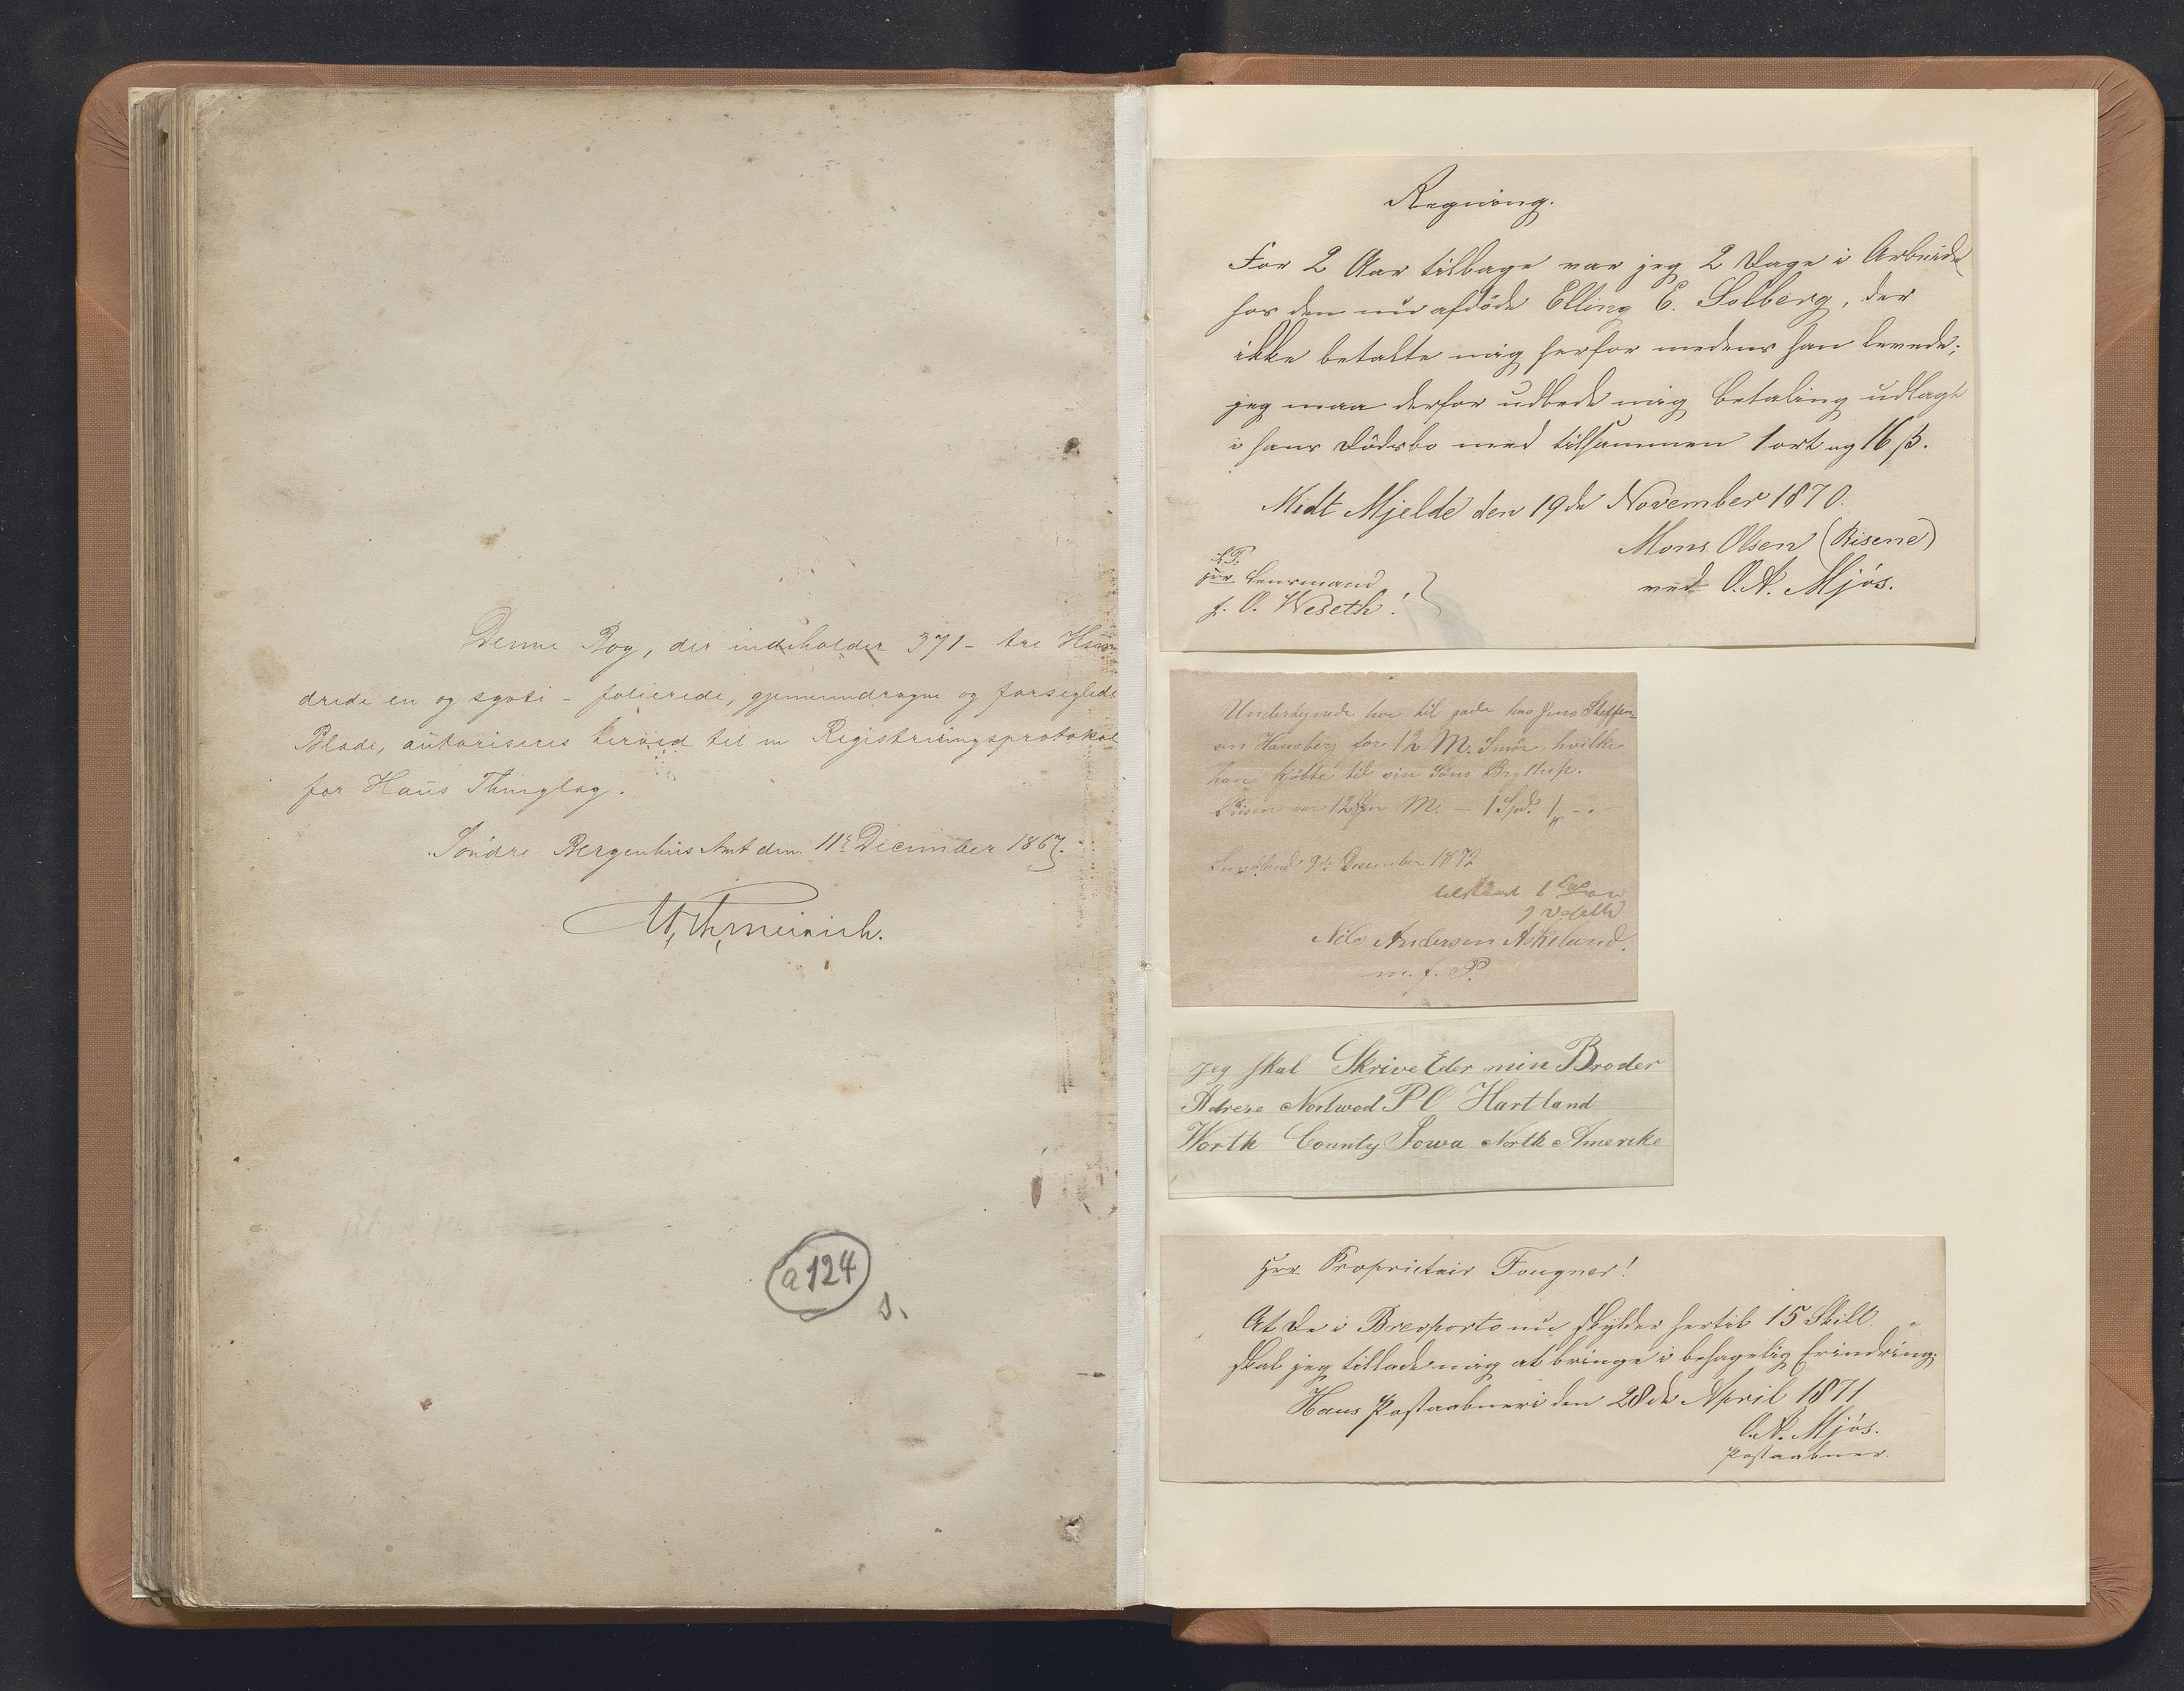 Denne Bog, der indeholder 371 - tre Hun
drede en og sytti - folierede, gjennemdragne og forseglede
Blade, autoriseres herved til en Registreringsprotokol
for Haus Thinglag.
Søndre Bergenhus Amt den 11te December 1867.
a 124
s.
Regning.
For 2 Aar tilbage var jeg 2 Dage i Arbeide
hos den nu afdøde Elling E. Solberg, der
ikke betalte mig herfor medens han levede;
jeg maa derfor udbede mig Betaling udlagt
i hans Dødsbo med tilsammen 1 ort og 16 ß.
Midt Mjelde den 19de November 1870.
Mons Olsen (Risene)
ved O. A. Mjøs.
S.T.
Herr Lensmand
J. O. Wedeth!
Undertegnede har til gode hos Jens Steffen-
sen Hausberg for 12 M. Smør, hvilke
han kjøbte til sin Søns Bryllup.
Prisen var 12 ß pr M. - 1 Spd. 1 " - .
9de December 1872
Nils Andersen Askeland.
m. f. P.
Jeg skal Skrive Eder min Broder
Adrese Nordwod P O Hartland
Worth County Iowa North Amereke
Herr Proprietair Fougner!
At De i Brevporto nu skylder hertil 15 Skill.
skal jeg tillade mig at bringe i behagelig Erindring.
Haus Postaabneri den 28de April 1871
O. A. Mjøs.
Postaabner.